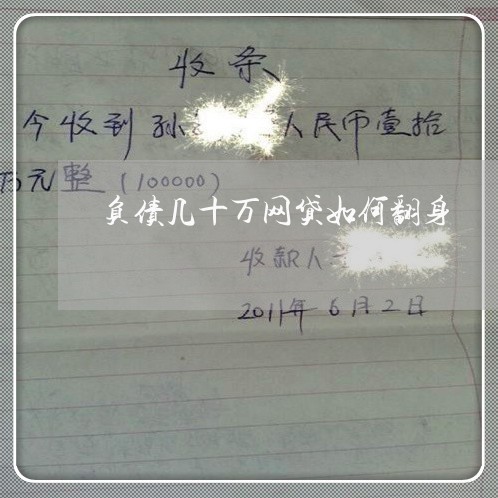 收条
今收到孙 人民币壹拾
万元整（100000）
负债几十万网贷如何翻身
收款人
2011年6月2日